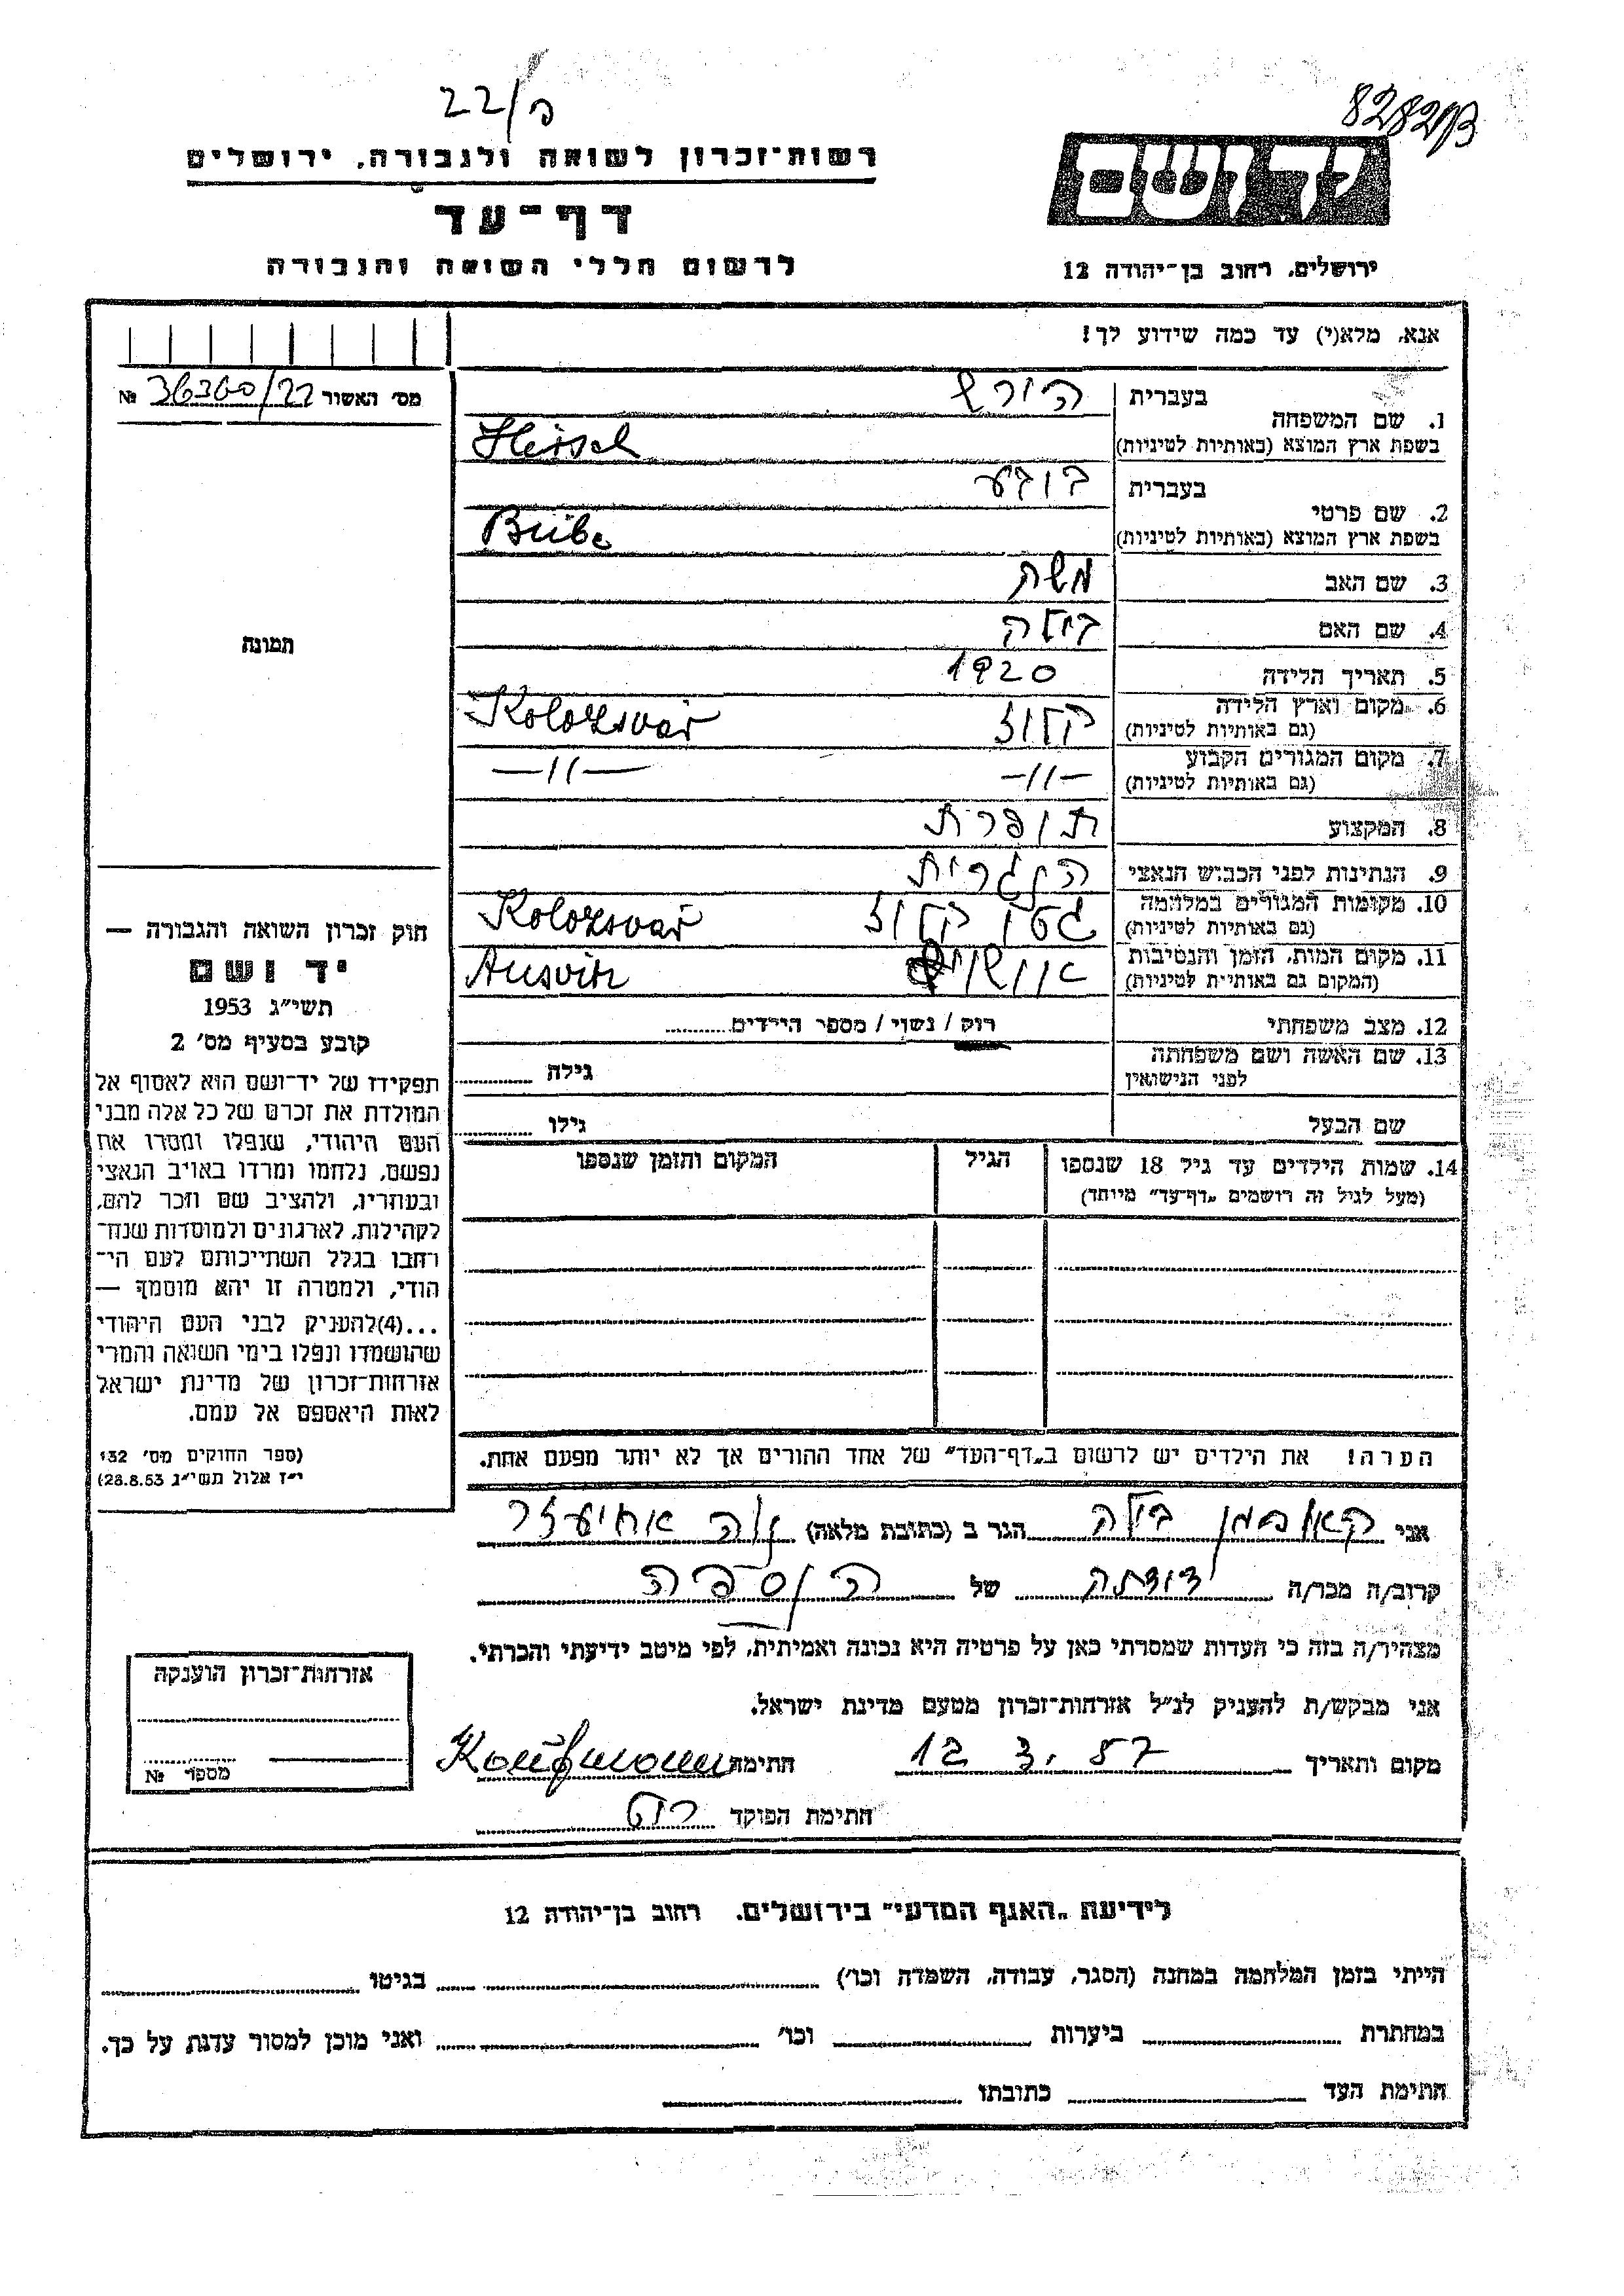 22/פ
8282/3
רשות־זכרון לשואה ולגבורה, ירושלים
דף־עד
לרשום חללי השואה והגבורה
יד ושם
ירושלים, רחוב בן־יהודה 12
אנא, מלא(י) עד כמה שידוע לך!
מס׳ האשור 36360/22 №
תמונה
1. שם המשפחה בעברית הירש
בשפת ארץ המוצא (באותיות לטיניות) Hersch
2. שם פרטי בעברית
בשפת ארץ המוצא (באותיות לטיניות)
3. שם האב משה
4. שם האם בילה
5. תאריך הלידה 1920
6. מקום וארץ הלידה (גם באותיות לטיניות) קלוז Kolozsvár
7. מקום המגורים הקבוע (גם באותיות לטיניות) —״— —״—
8. המקצוע תופרת
9. הנתינות לפני הכבוש הנאצי הונגרית
10. מקומות המגורים במלחמה (גם באותיות לטיניות) גטו קלוז Kolozsvár
11. מקום המות, הזמן והנסיבות (המקום גם באותיות לטיניות) Ausvitz
12. מצב משפחתי רוק / נשוי / מספר הילדים
13. שם האשה ושם משפחתה לפני הנישואין גילה
שם הבעל גילו
14. שמות הילדים עד גיל 18 שנספו הגיל המקום והזמן שנספו
(מעל לגיל זה רושמים „דף־עד״ מיוחד)
חוק זכרון השואה והגבורה —
יד ושם
תשי״ג 1953
קובע בסעיף מס׳ 2
תפקידו של יד־ושם הוא לאסוף אל
המולדת את זכרם של כל אלה מבני
העם היהודי, שנפלו ומסרו את
נפשם, נלחמו ומרדו באויב הנאצי
ובעוזריו, ולהציב שם וזכר להם,
לקהילות, לארגונים ולמוסדות שנח־
רבו בגלל השתייכותם לעם הי־
הודי, ולמטרה זו יהא מוסמך —
...(4)להעניק לבני העם היהודי
שהושמדו ונפלו בימי השואה והמרי
אזרחות־זכרון של מדינת ישראל
לאות היאספם אל עמם.
(ספר החוקים מס׳ 132
י״ז אלול תשי״ג 28.8.53)
הערה! את הילדים יש לרשום ב„דף־העד״ של אחד ההורים אך לא יותר מפעם אחת.
אני קאופמן בילה הגר ב (כתובת מלאה) נוה אחיעזר
קרוב/ה מכר/ה דודתה של הנספה
מצהיר/ה בזה כי העדות שמסרתי כאן על פרטיה היא נכונה ואמיתית, לפי מיטב ידיעתי והכרתי.
אני מבקש/ת להעניק לנ״ל אזרחות־זכרון מטעם מדינת ישראל.
מקום ותאריך 12 3. 57 חתימת Kaufmann
חתימת הפוקד
אזרחות־זכרון הוענקה
מספר №
לידיעת „האגף המדעי״ בירושלים. רחוב בן־יהודה 12
הייתי בזמן המלחמה במחנה (הסגר, עבודה, השמדה וכו׳) בגיטו
במחתרת ביערות וכו׳ ואני מוכן למסור עדות על כך.
חתימת העד כתובתו